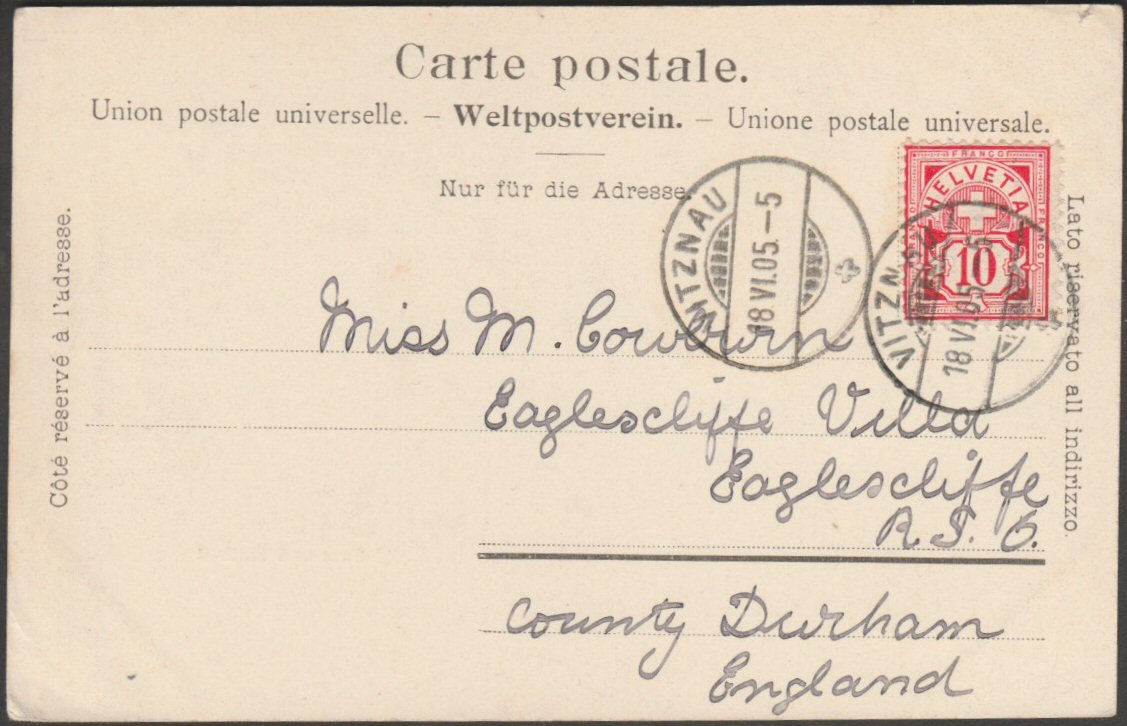 Carte postale.
Union postale universelle. – Weltpostverein. – Unione postale universale.
Nur für die Adresse.
Côté réservé à l'adresse.
Lato riservato all indirizzo.
FRANCO
FRANCO
FRANCO
HELVETIA
10
VITZNAU
18 VI.05.–5
VITZNAU
18 VI.05. 5
Miss M. Cowburn
Eaglescliffe Villa
Eaglescliffe
R. S. O.
County Durham
England